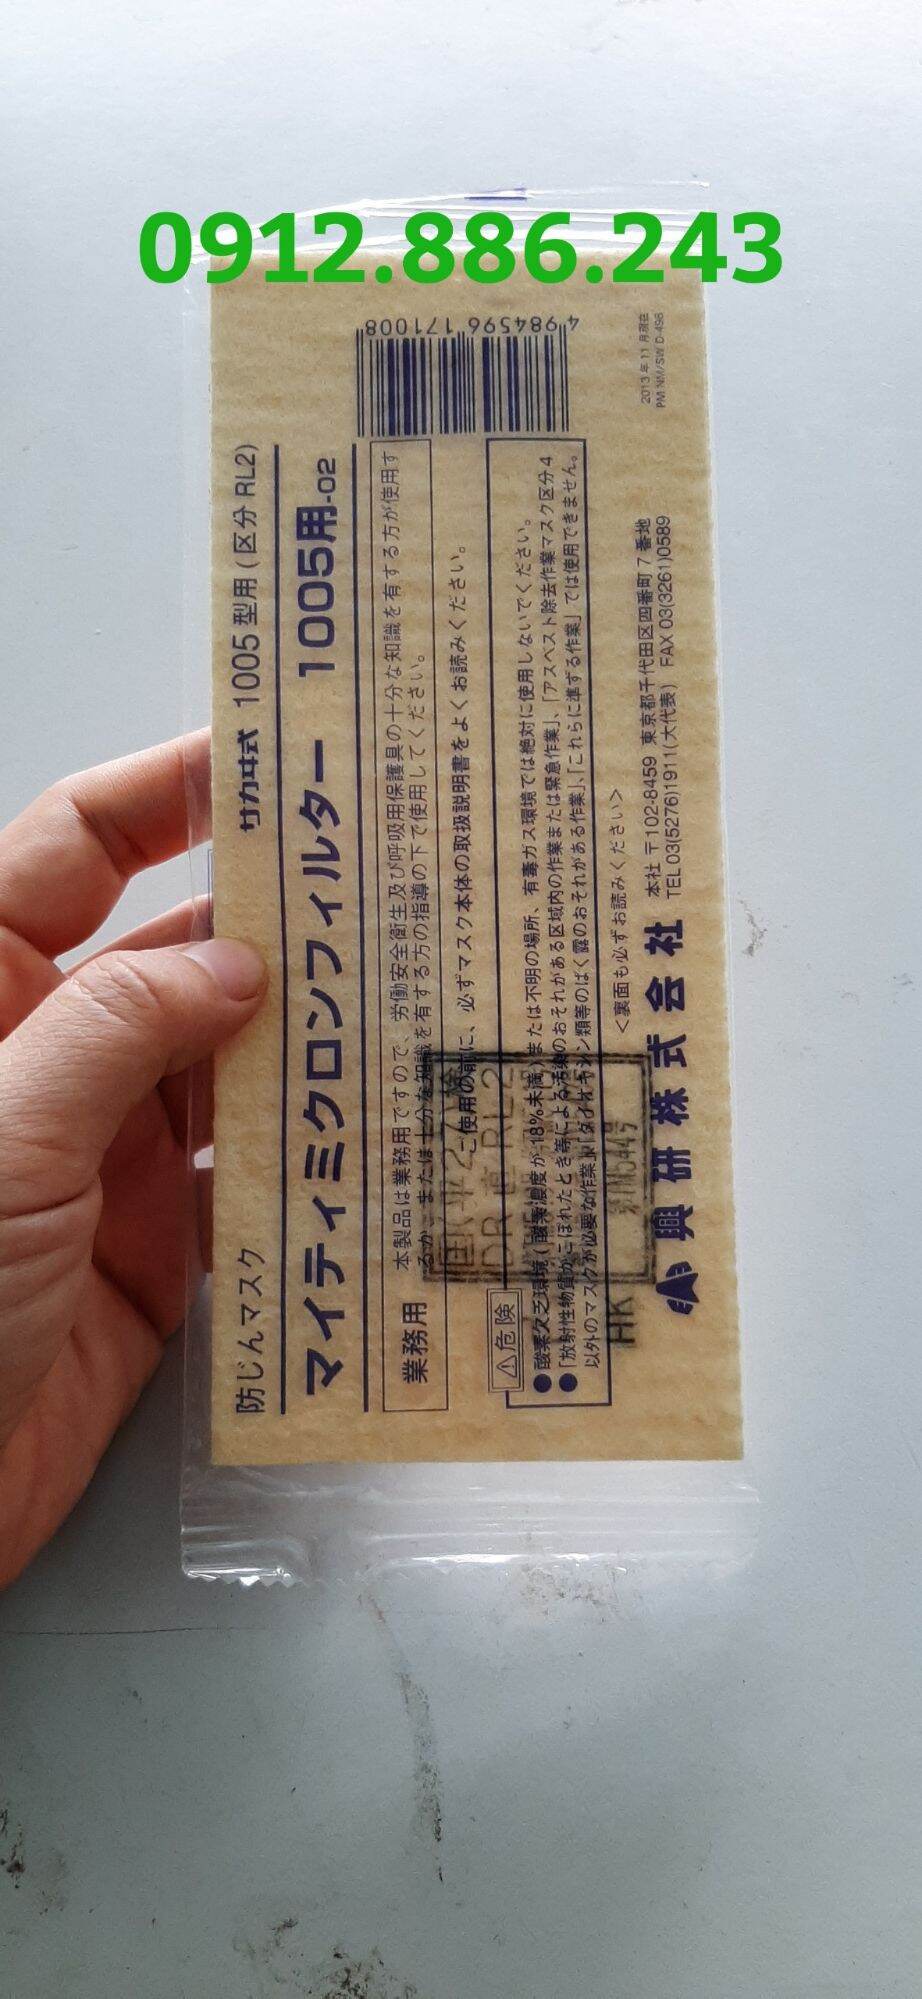 0912.886.243
防じんマスク サカヰ式 1005型用(区分RL2)
マイティミクロンフィルター 1005用-02
業務用
本製品は業務用ですので、労働安全衛生及び呼吸用保護具の十分な知識を有する方が使用す
るか、または十分な知識を有する方の指導の下で使用してください。
ご使用の前に、必ずマスク本体の取扱説明書をよくお読みください。
⚠危険
●酸素欠乏環境(酸素濃度が18%未満)または不明の場所、有毒ガス環境では絶対に使用しないでください。
●「放射性物質がこぼれたとき等による汚染のおそれがある区域内の作業または緊急作業」、「アスベスト除去作業マスク区分4
以外のマスクが必要な作業」「ダイオキシン類等のばく露のおそれがある作業」、「これらに準ずる作業」では使用できません。
<裏面も必ずお読みください>
興研株式会社
本社 〒102-8459 東京都千代田区四番町7番地
TEL 03(5276)1911(大代表) FAX 03(3261)0589
4 984596 171008
2013年11月現在
PM NM/SW D-498
DR 直 RL2
HK